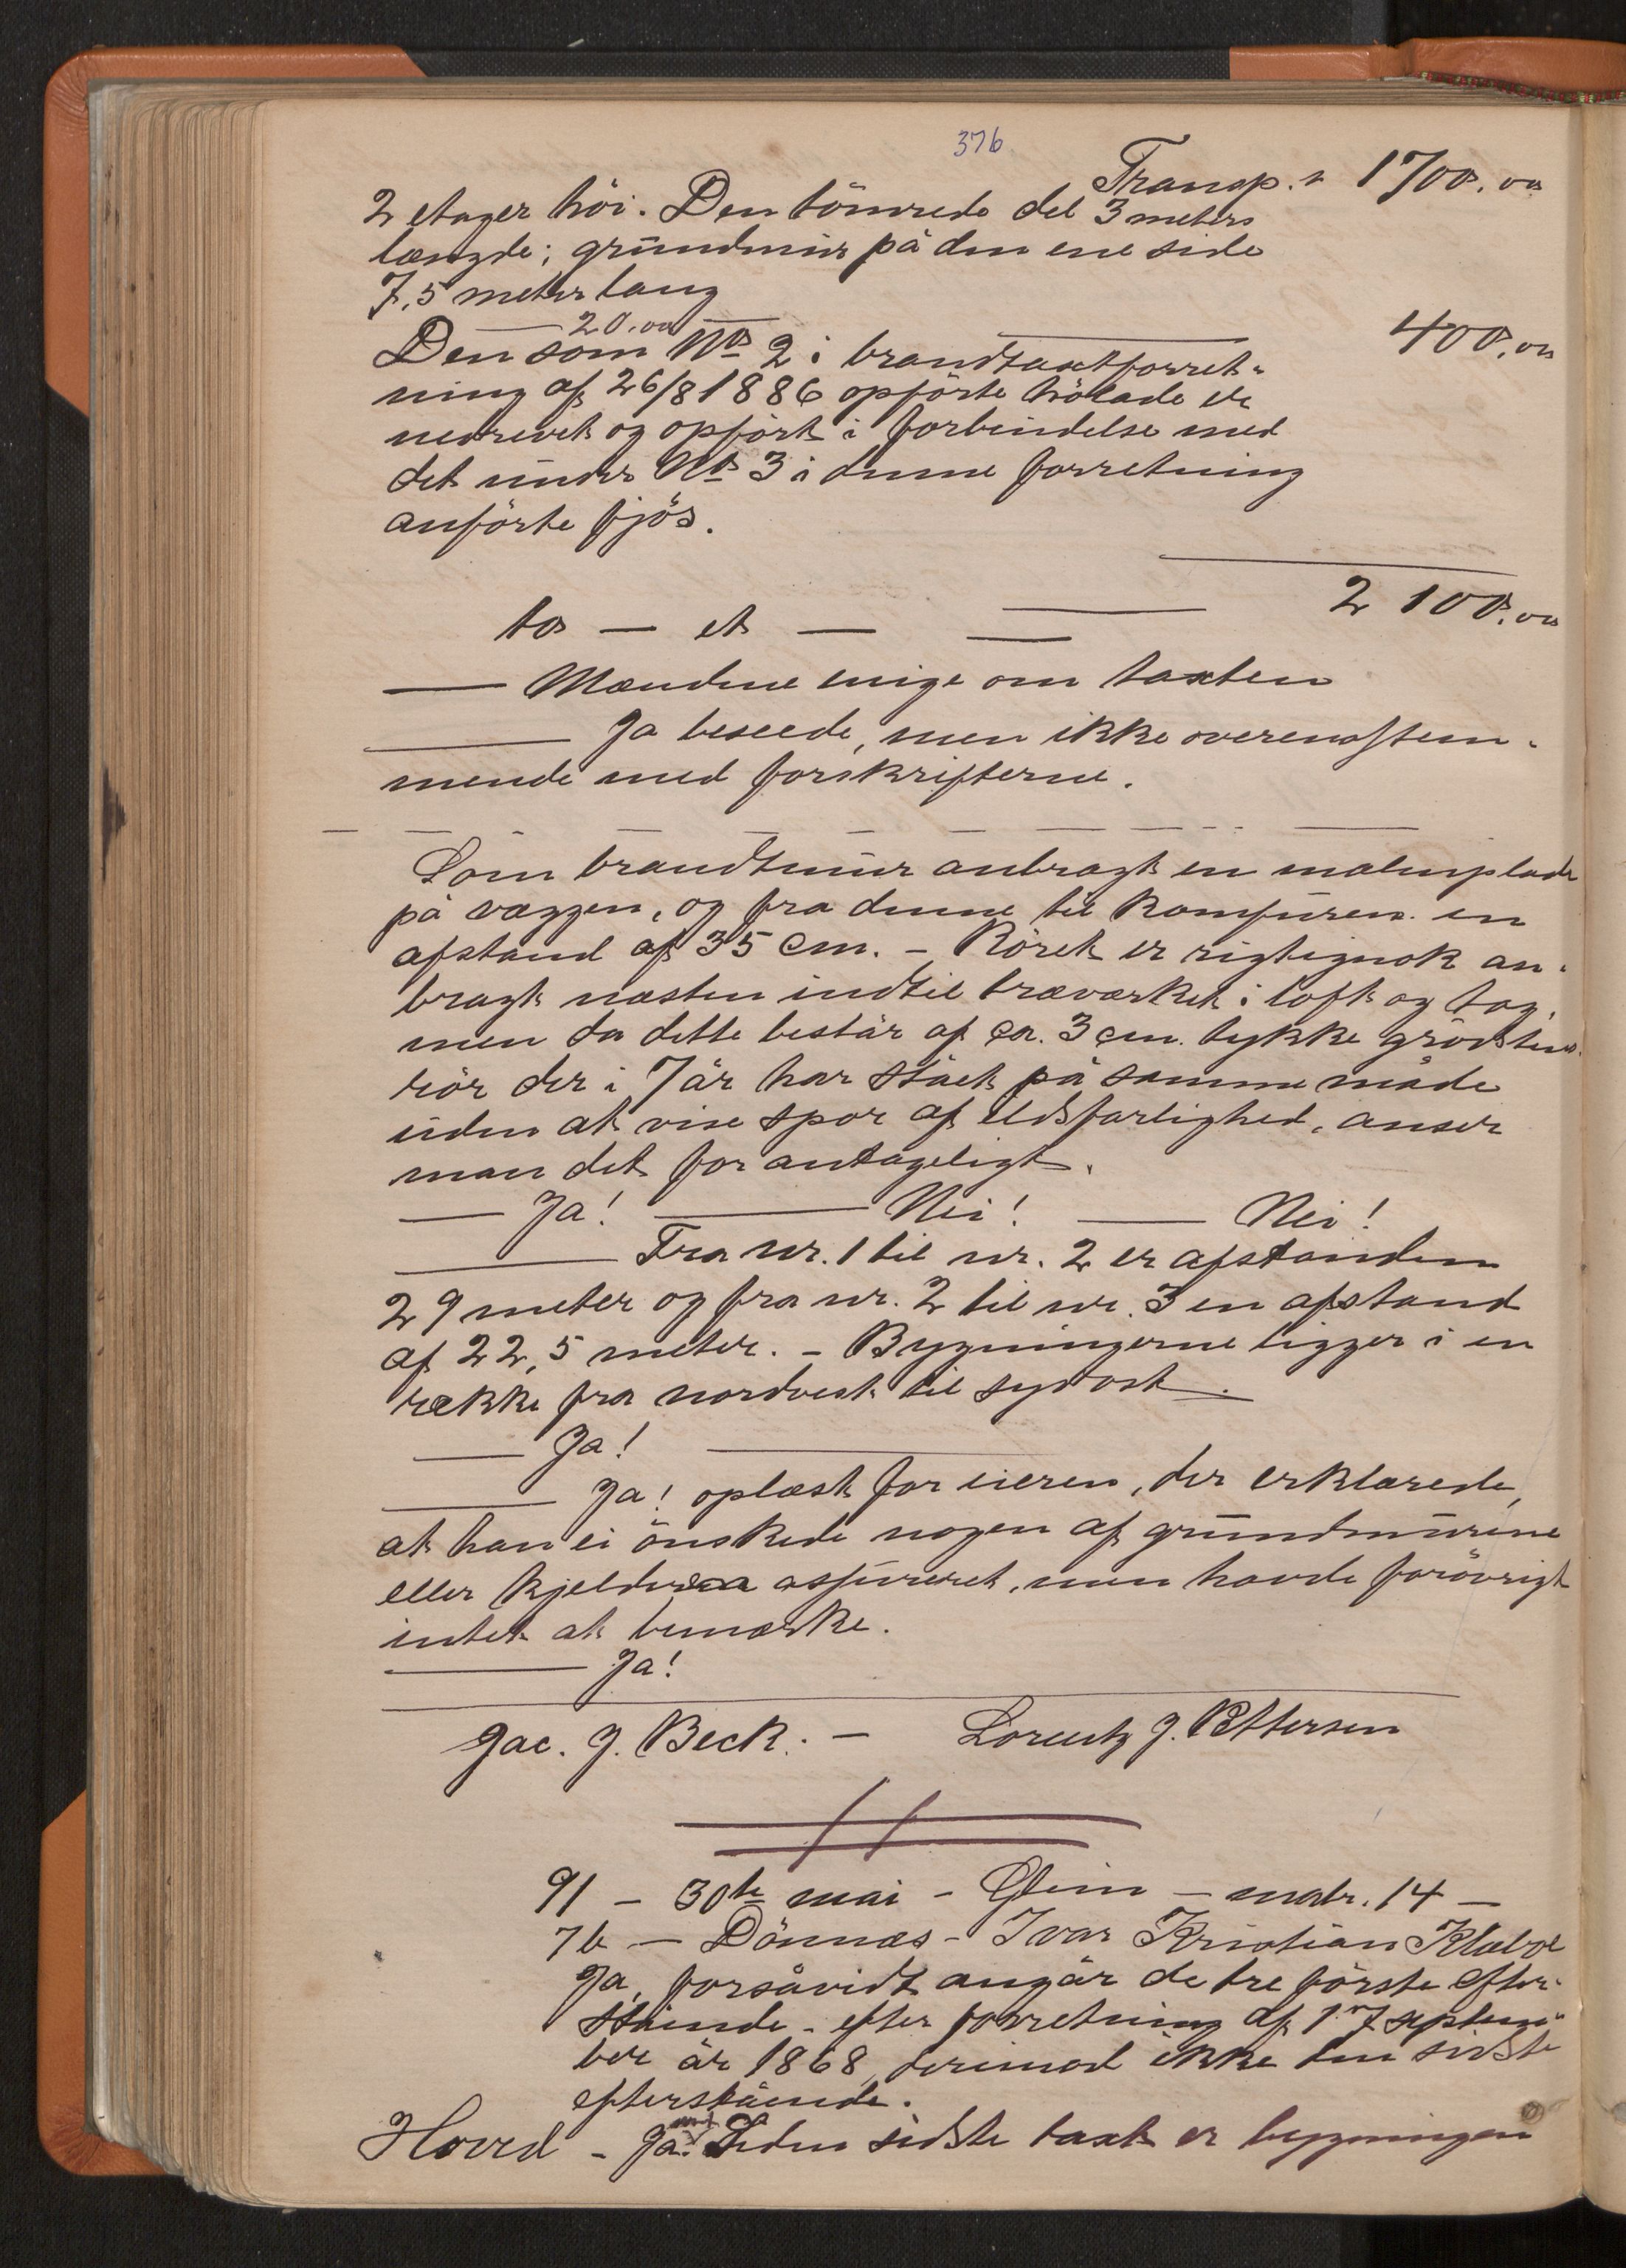 376.
Transp. r 1700.00
2 etager höi. Den tömrede del 3 meters
længde; grundmur på den ene side
7,5 meter lang
— 20.00 — — 400.00
Den som No 2 i brandtaxtforret-
ning af 26/8 1886 opförte hölade er
nedrevet og opfört i forbindelse med
det under No 3 i denne forretning
anförte fjös.
2 100.00
to — et — — —
— Mændene enige om taxten
— Ja beseede, men ikke overenstem-
mende med forskrifterne.
Som brandmur anbragt en malmplade
på væggen, og fra denne til komfuren en
afstand af 35 cm. – Röret er rigtignok an-
bragt næsten indtil træværket i loft og tag,
men da dette består af ca. 3 cm. tykke
rör der i 7 år har stået på samme måde
uden at vise spor af ildsfarlighed, anser
man det for antageligt.
— Ja! — Nei! — Nei!
— Fra nr. 1 til nr. 2 er afstanden
29 meter og fra nr. 2 til nr. 3 en afstand
af 22,5 meter. – Bygningerne ligger i en
række fra nordvest til sydost.
— Ja! —
— Ja! oplæst for eieren, der erklærede,
at han ei önskede nogen af grundmurene
eller kjelderen assureret, men havde forövrigt
intet at bemærke.
— Ja!
Jac. J. Beck. – Lorentz J. Pettersen
91 – 30te mai – Glein – matr. 14 –
7b – Dönnæs – Ivar Kristian
Ja, forsåvidt angår de tre förste efter-
stående – efter forretning af 17 septem-
ber år 1868, derimod ikke den sidste
efterstående.
Hoved – Ja. Siden sidste taxt er bygningen